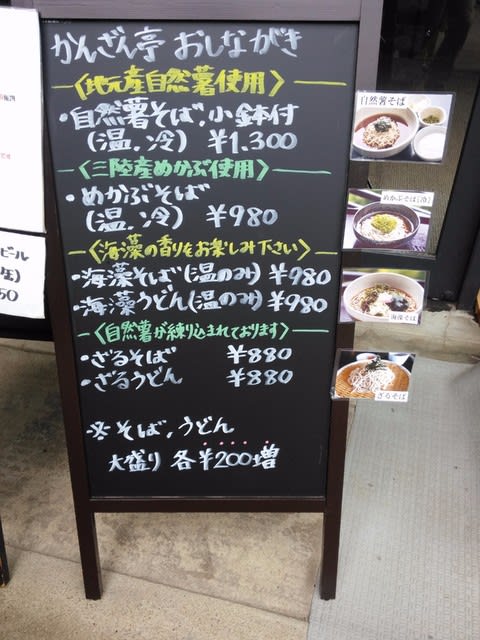 かんざん亭 おしながき
〈地元産自然薯使用〉
・自然薯そば.小鉢付
(温.冷) ¥1.300
〈三陸産めかぶ使用〉
・めかぶそば
(温.冷) ¥980
〈海藻の香りをお楽しみ下さい〉
・海藻そば(温のみ) ¥980
・海藻うどん(温のみ) ¥980
〈自然薯が練り込まれております〉
・ざるそば ¥880
・ざるうどん ¥880
※そば.うどん
大盛り 各¥200増
自然薯そば
めかぶそば(冷)
海藻そば
ざるそば
ビール
50